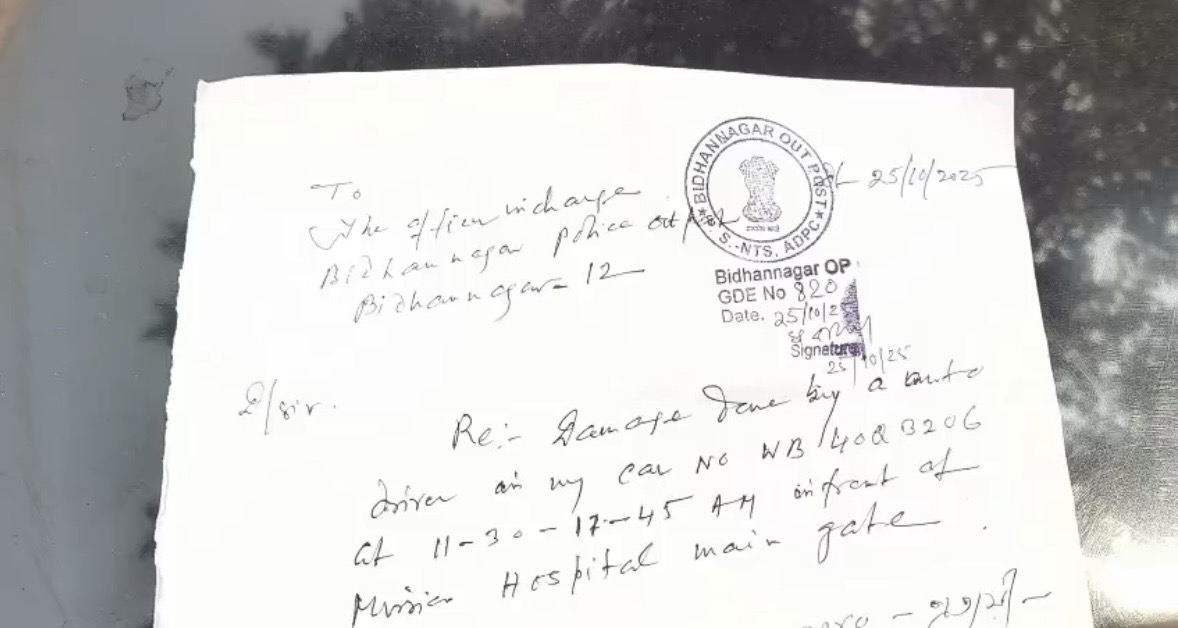 To
The officer incharge
Bidhannagar police out post
Bidhannagar - 12
BIDHANNAGAR OUT POST
P.S.-NTS, ADPC
25/10/2025
Bidhannagar OP
GDE No 820
Date. 25/10/25
Signature
25/10/25
D/sir.
Re:- Damage done by a auto
driver on my car No WB 40 3206
at 11-30 - 45 AM infront of
Mission Hospital main gate.